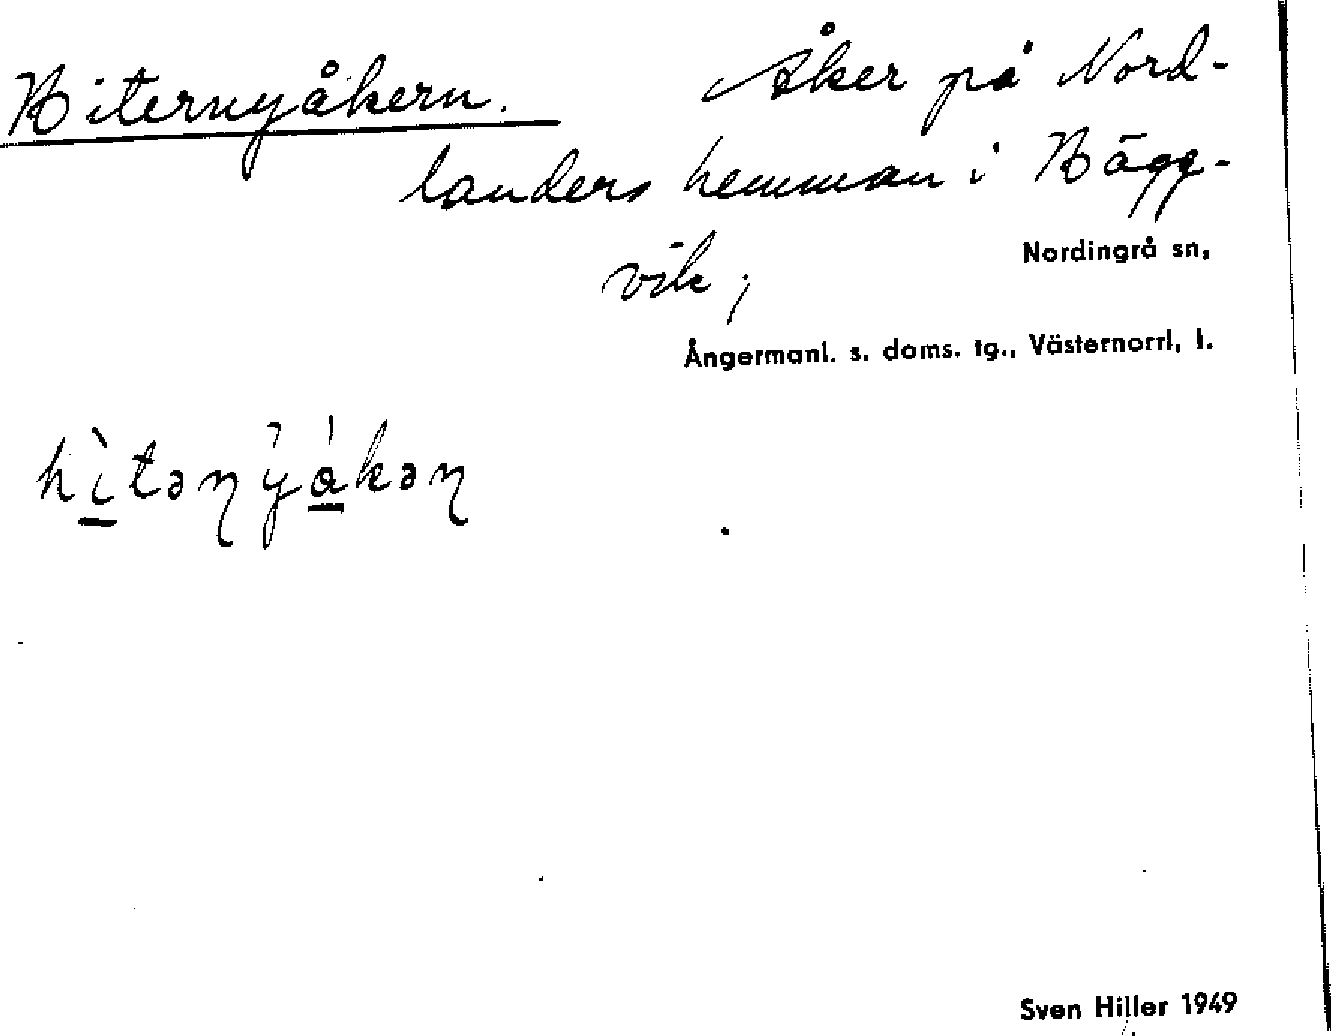 Hiternyåkern.
Åker på Nord-
landers hemman i Hägg-
vik;
Nordingrå sn,
Ångermanl. s. doms. tg., Västernorrl, l.
hìtəɳyákəɳ
Sven Hiller 1949